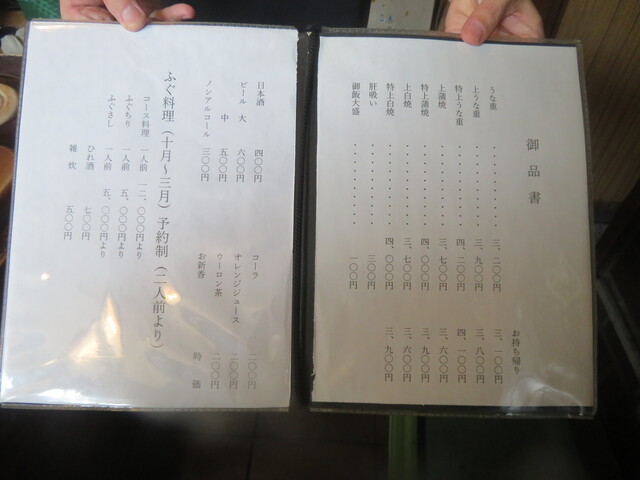 御品書
お持ち帰り
うな重 ・・・・・・・・・ 三、二〇〇円 三、一〇〇円
上うな重 ・・・・・・・・・ 三、九〇〇円 三、八〇〇円
特上うな重 ・・・・・・・・・ 四、二〇〇円 四、一〇〇円
上蒲焼 ・・・・・・・・・ 三、七〇〇円 三、六〇〇円
特上蒲焼 ・・・・・・・・・ 四、〇〇〇円 三、九〇〇円
上白焼 ・・・・・・・・・ 三、七〇〇円 三、六〇〇円
特上白焼 ・・・・・・・・・ 四、〇〇〇円 三、九〇〇円
肝吸い ・・・・・・・・・ 三〇〇円
御飯大盛 ・・・・・・・・・ 一〇〇円
日本酒 四〇〇円 コーラ 二〇〇円
ビール 大 六〇〇円 オレンジジュース 二〇〇円
中 五〇〇円 ウーロン茶 二〇〇円
ノンアルコール 三〇〇円 お新香 時価
ふぐ料理（十月～三月）予約制（二人前より）
コース料理 一人前 一二、〇〇〇円より
ふぐちり 一人前 五、〇〇〇円より
ふぐさし 一人前 五、〇〇〇円より
ひれ酒 七〇〇円
雑炊 五〇〇円